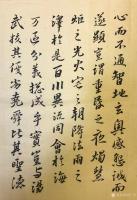 心而不通智地玄奧感懇誠而
遂顯豈謂重昏之夜燭慧
炬之光火宅之朝降法雨之
澤於是百川異流同會於海
万區分義揔成乎實豈與湯
武校其優劣堯舜比其聖德